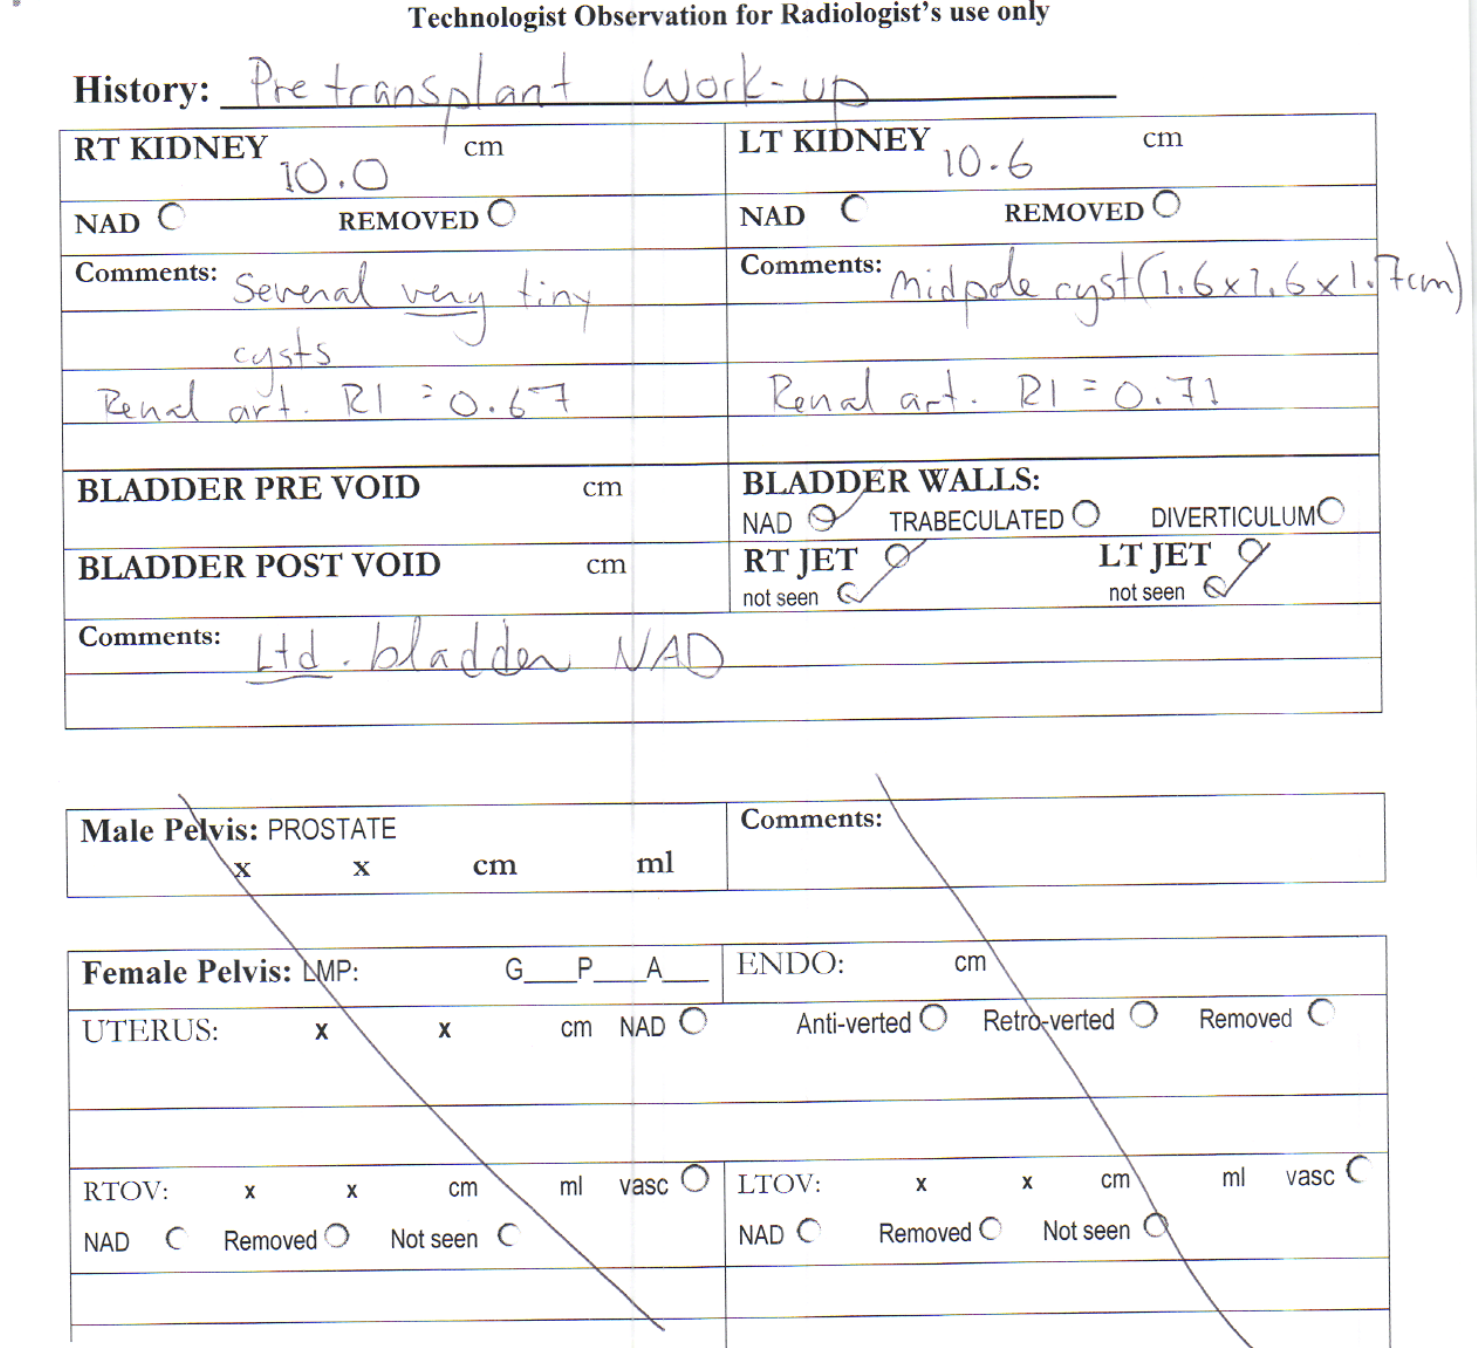 Technologist Observation for Radiologist's use only
History: Pre transplant Work-up
RT KIDNEY 10.0 cm
LT KIDNEY 10.6 cm
NAD REMOVED
NAD REMOVED
Comments: Several very tiny
cysts
Renal art. RI = 0.67
Comments: Midpole cyst (1.6x1.6x1.7cm)
Renal art. RI = 0.71
BLADDER PRE VOID cm
BLADDER WALLS:
NAD TRABECULATED DIVERTICULUM
BLADDER POST VOID cm
RT JET LT JET
not seen not seen
Comments: Ltd. bladder NAD
Male Pelvis: PROSTATE
x x cm ml
Comments:
Female Pelvis: LMP: G___P___A___
ENDO: cm
UTERUS: x x cm NAD Anti-verted Retro-verted Removed
RTOV: x x cm ml vasc
NAD Removed Not seen
LTOV: x x cm ml vasc
NAD Removed Not seen